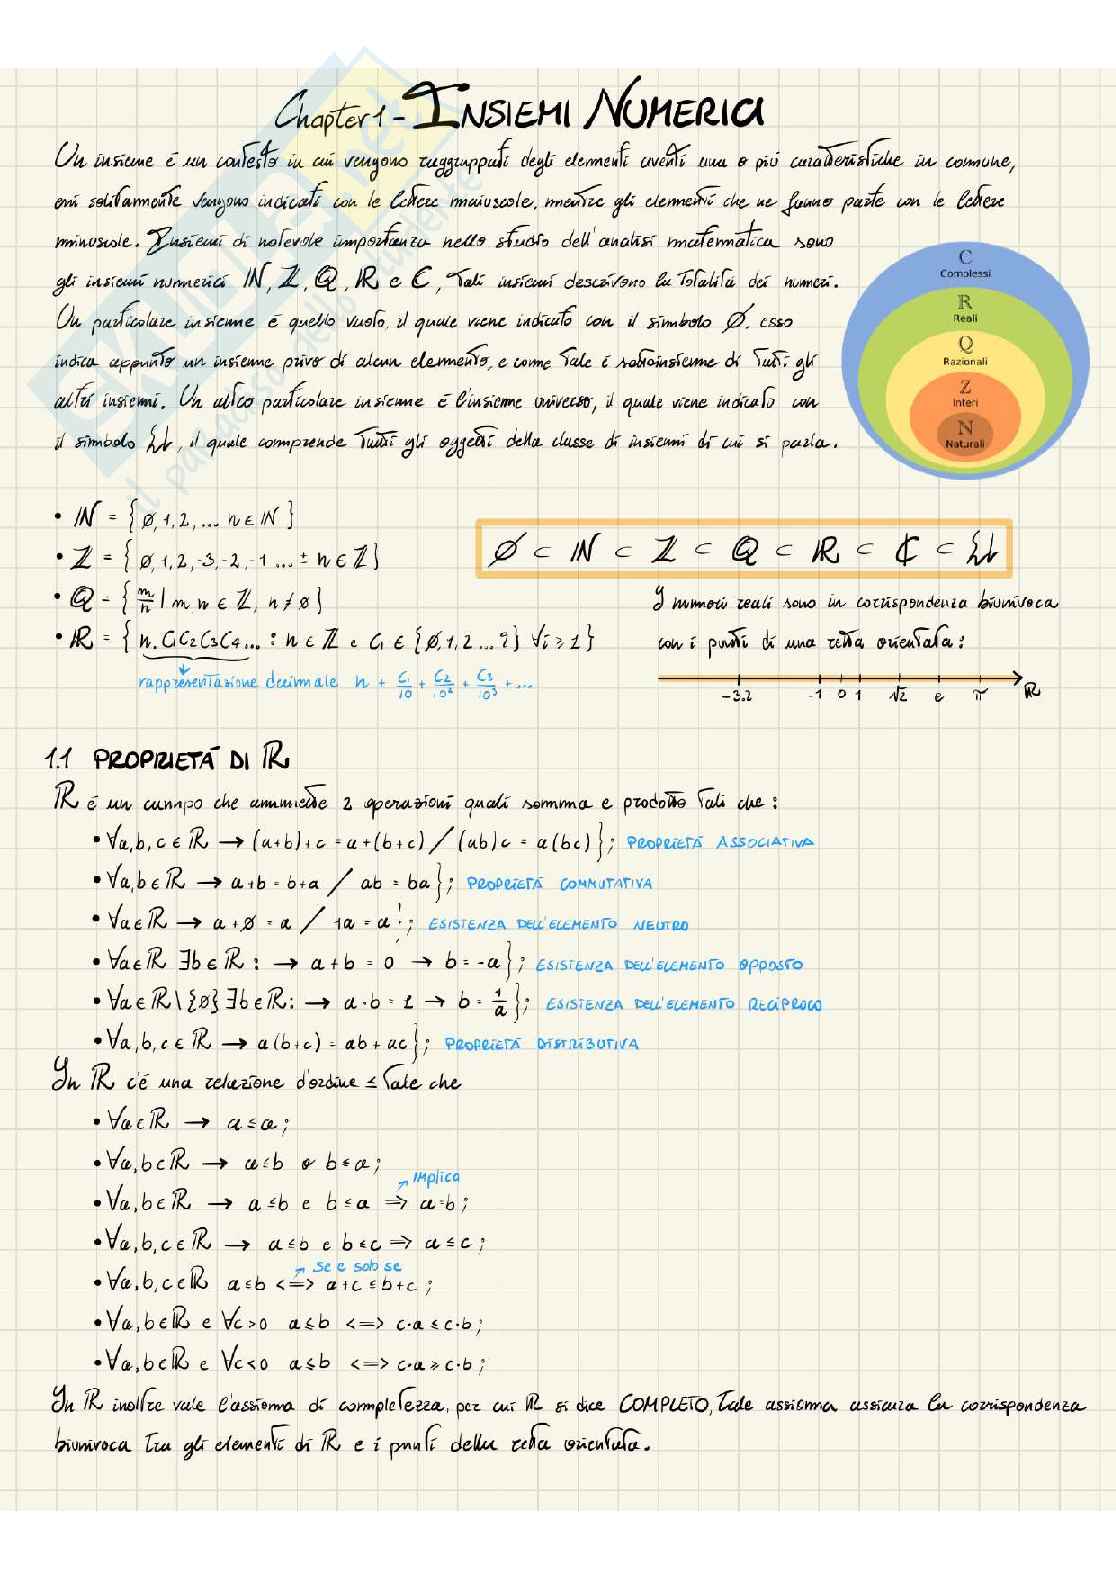 Chapter 1 - INSIEMI NUMERICI
Un insieme é un contesto in cui vengono raggruppati degli elementi aventi una o piú caratteristiche in comune,
essi solitamente vengono indicati con le lettere maiuscole, mentre gli elementi che ne fanno parte con le lettere
minuscole. Insiemi di notevole importanza nello studio dell'analisi matematica sono
gli insiemi numerici ℕ, ℤ, ℚ, ℝ e ℂ, tali insiemi descrivono la totalitá dei numeri.
Un particolare insieme é quello vuoto, il quale viene indicato con il simbolo Ø, esso
indica appunto un insieme privo di alcun elemento, e come tale é sottoinsieme di tutti gli
altri insiemi. Un altro particolare insieme é l'insieme universo, il quale viene indicato con
il simbolo U, il quale comprende tutti gli oggetti della classe di insiemi di cui si parla.
C
Complessi
R
Reali
Q
Razionali
Z
Interi
N
Naturali
• ℕ = {0,1,2,... n ∈ ℕ}
• ℤ = {0,1,2,-3,-2,-1 ... ± n ∈ ℤ}
• ℚ = {m/n | m, n ∈ ℤ, n ≠ 0}
• ℝ = {n.C1C2C3C4... : n ∈ ℤ e Ci ∈ {0,1,2...9} ∀i ≥ 1}
rappresentazione decimale n + C1/10 + C2/10² + C3/10³ + ...
Ø ⊂ ℕ ⊂ ℤ ⊂ ℚ ⊂ ℝ ⊂ ℂ ⊂ U
I numeri reali sono in corrispondenza biunivoca
con i punti di una retta orientata:
-3.2 -1 0 1 √2 e π ℝ
1.1 PROPRIETÁ DI ℝ
ℝ é un campo che ammette 2 operazioni quali somma e prodotto tali che:
• ∀a,b,c ∈ ℝ → (a+b)+c = a+(b+c) / (ab)c = a(bc)}; PROPRIETÁ ASSOCIATIVA
• ∀a,b ∈ ℝ → a+b = b+a / ab = ba}; PROPRIETÁ COMMUTATIVA
• ∀a ∈ ℝ → a+0 = a / 1a = a}; ESISTENZA DELL'ELEMENTO NEUTRO
• ∀a ∈ ℝ ∃b ∈ ℝ: → a+b = 0 → b = -a}; ESISTENZA DELL'ELEMENTO OPPOSTO
• ∀a ∈ ℝ\{0} ∃b ∈ ℝ: → a·b = 1 → b = 1/a}; ESISTENZA DELL'ELEMENTO RECIPROCO
• ∀a,b,c ∈ ℝ → a(b+c) = ab + ac}; PROPRIETÁ DISTRIBUTIVA
In ℝ c'é una relazione d'ordine ≤ tale che
• ∀a ∈ ℝ → a ≤ a;
• ∀a,b ∈ ℝ → a ≤ b o b ≤ a;
implica
• ∀a,b ∈ ℝ → a ≤ b e b ≤ a => a = b;
• ∀a,b,c ∈ ℝ → a ≤ b e b ≤ c => a ≤ c;
se e solo se
• ∀a,b,c ∈ ℝ a ≤ b <=> a+c ≤ b+c;
• ∀a,b ∈ ℝ e ∀c>0 a ≤ b <=> c·a ≤ c·b;
• ∀a,b ∈ ℝ e ∀c<0 a ≤ b <=> c·a ≥ c·b;
In ℝ inoltre vale l'assioma di completezza, per cui ℝ si dice COMPLETO, tale assioma assicura la corrispondenza
biunivoca tra gli elementi di ℝ e i punti della retta orientata.